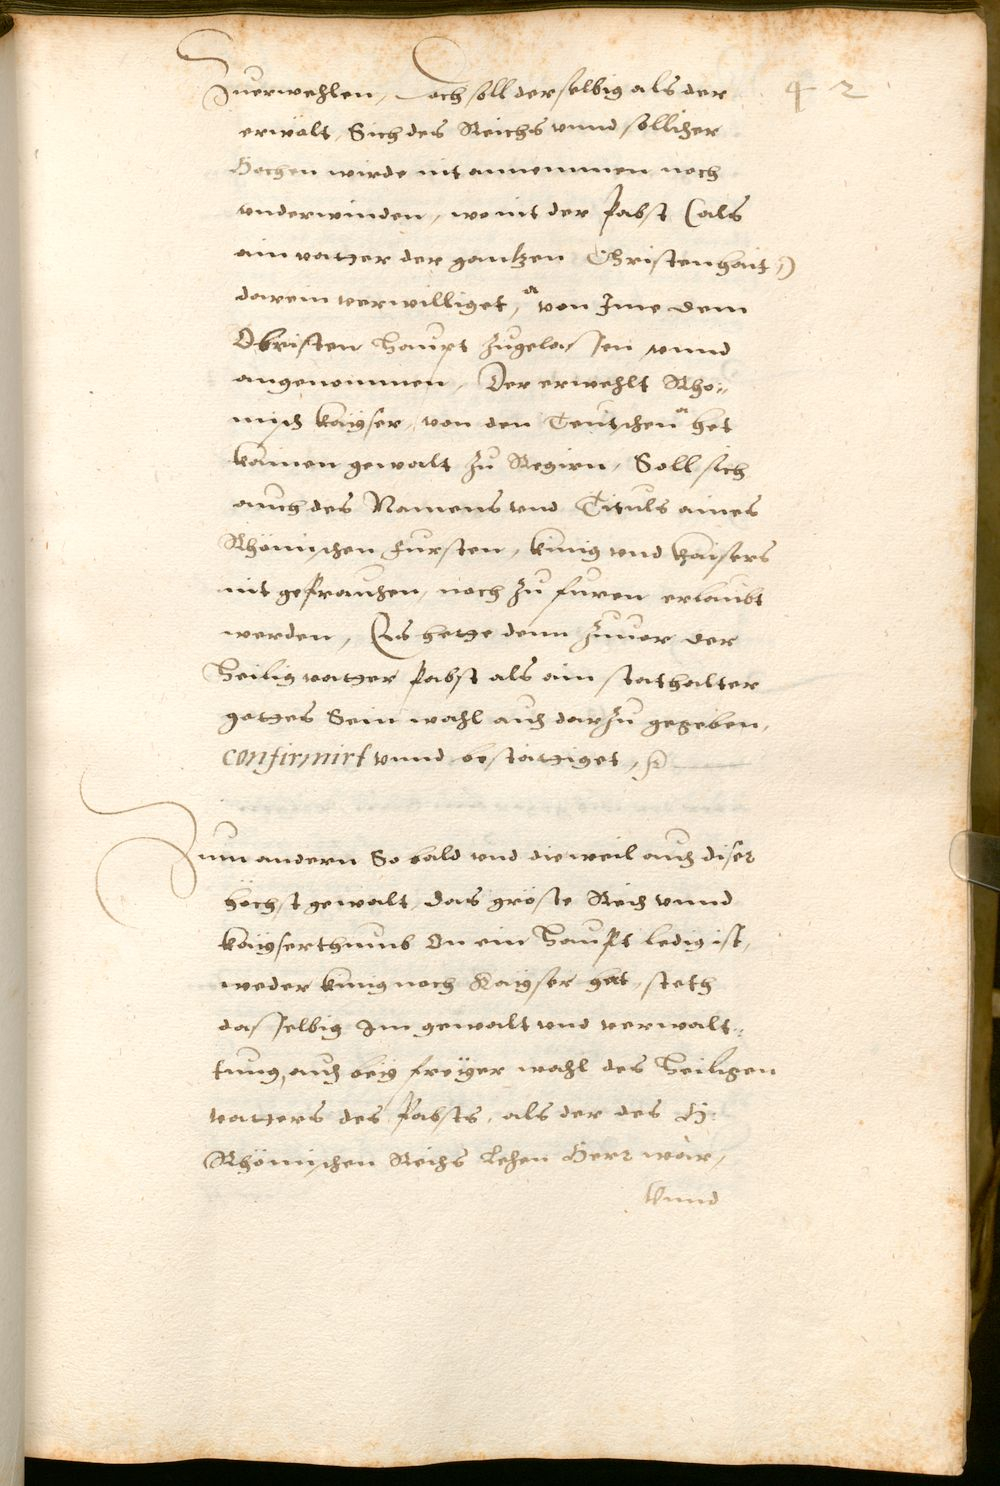 42
Zuerwehlen, Doch soll derselbig als der
erwölt, Sich des Reichs vnnd sollicher
Hochen wirde nit annemmen noch
vnderwinden, wo nit der Pabst (als
ain vatter der gantzen Christenhait,)
darein verwilliget, von Ime dem
Obristen Haupt zugelassen vnnd
angenommen, Der erwehlt Rho¬
misch kaÿser, von den Teutschen het
kainen gewalt zu Regirn, Soll sich
auch des Namens vnd Tituls aines
Rhömischen Fursten, künig vnd kaisers
nit gebrauchen, noch zu furen erlaubt
werden, Es hette denn zuuor der
Heilig vatter Pabst als ain stathalter
gottes Sein wahl auch darzu gegeben,
confirmirt vnnd bestättiget,
Zum andern So bald vnd dieweil auch diser
höchst gewalt, das gröste Reich vnnd
kaÿserthumb On ein Haupt ledig ist,
weder künig noch Kaÿser hat, steth
dasselbig Im gewalt vnd verwalt¬
tung, auch beÿ freÿer wahl des Heiligen
vatters des Pabsts, als der des H:
Rhömischen Reichs Lehen Herr wär,
Vnnd